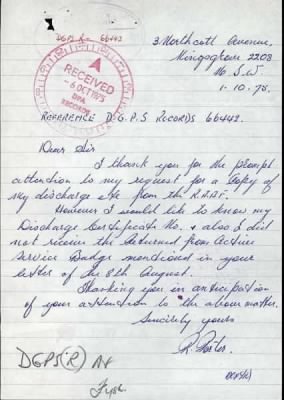 DGPS R- 66442
3 Northcott Avenue,
Kingsgrove 2208
N.S.W.
1-10.75.
RECEIVED
-6 OCT 1975
DPA
RECORDS
REFERENCE D.G.P.S RECORDS 66442.
Dear Sir
I thank you for the prompt
attention to my request for a Copy of
my discharge etc from the R.A.A.F.
However I would like to know my
Discharge Certificate No. & also I did
not receive the Returned from Active
Service Badge mentioned in your
letter of the 8th August.
Thanking you in anticipation
of your attention to the above matter.
Sincerely yours
R. Porter.
DGPS(R)